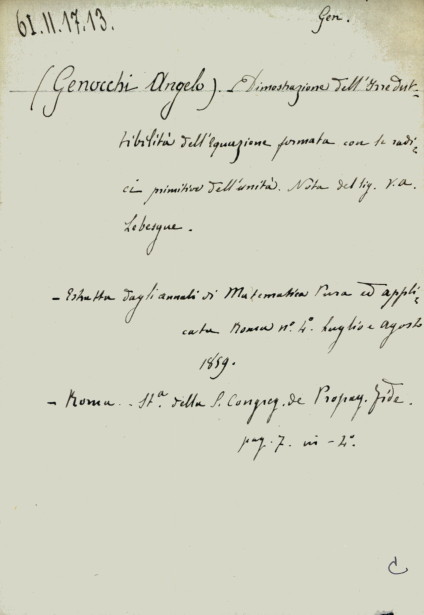 61.II.17.13.
Gen.
(Genocchi Angelo). Dimostrazione dell'Irredut-
tibilità dell'Equazione formata con le radi-
ci primitive dell'unità. Nota del Sig. V. A.
Lebesgue.
- Estratta dagli annali di Matematica Pura ed appli-
cata Roma n.º 4.º Luglio e agosto
1859.
- Roma - St.ª della S. Congreg. de Propag. Fide.
pag. 7. in - 4.º